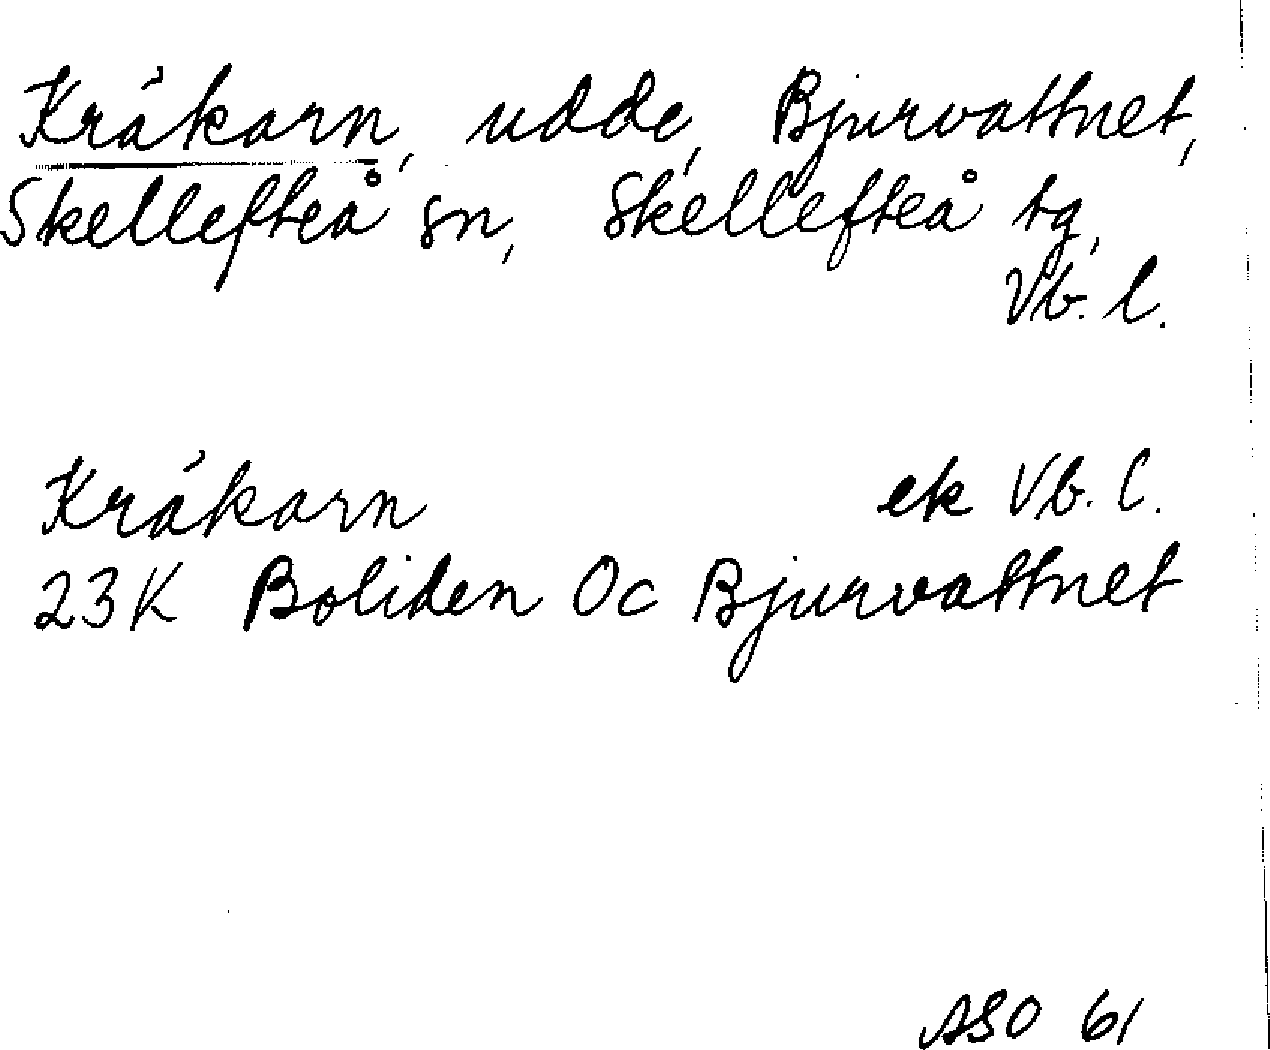 Kråkarn, udde, Bjurvattnet,
Skellefteå sn, Skellefteå tg,
Vb. l.
Kråkarn ek Vb. l.
23K Boliden Oc Bjurvattnet
ASO 61